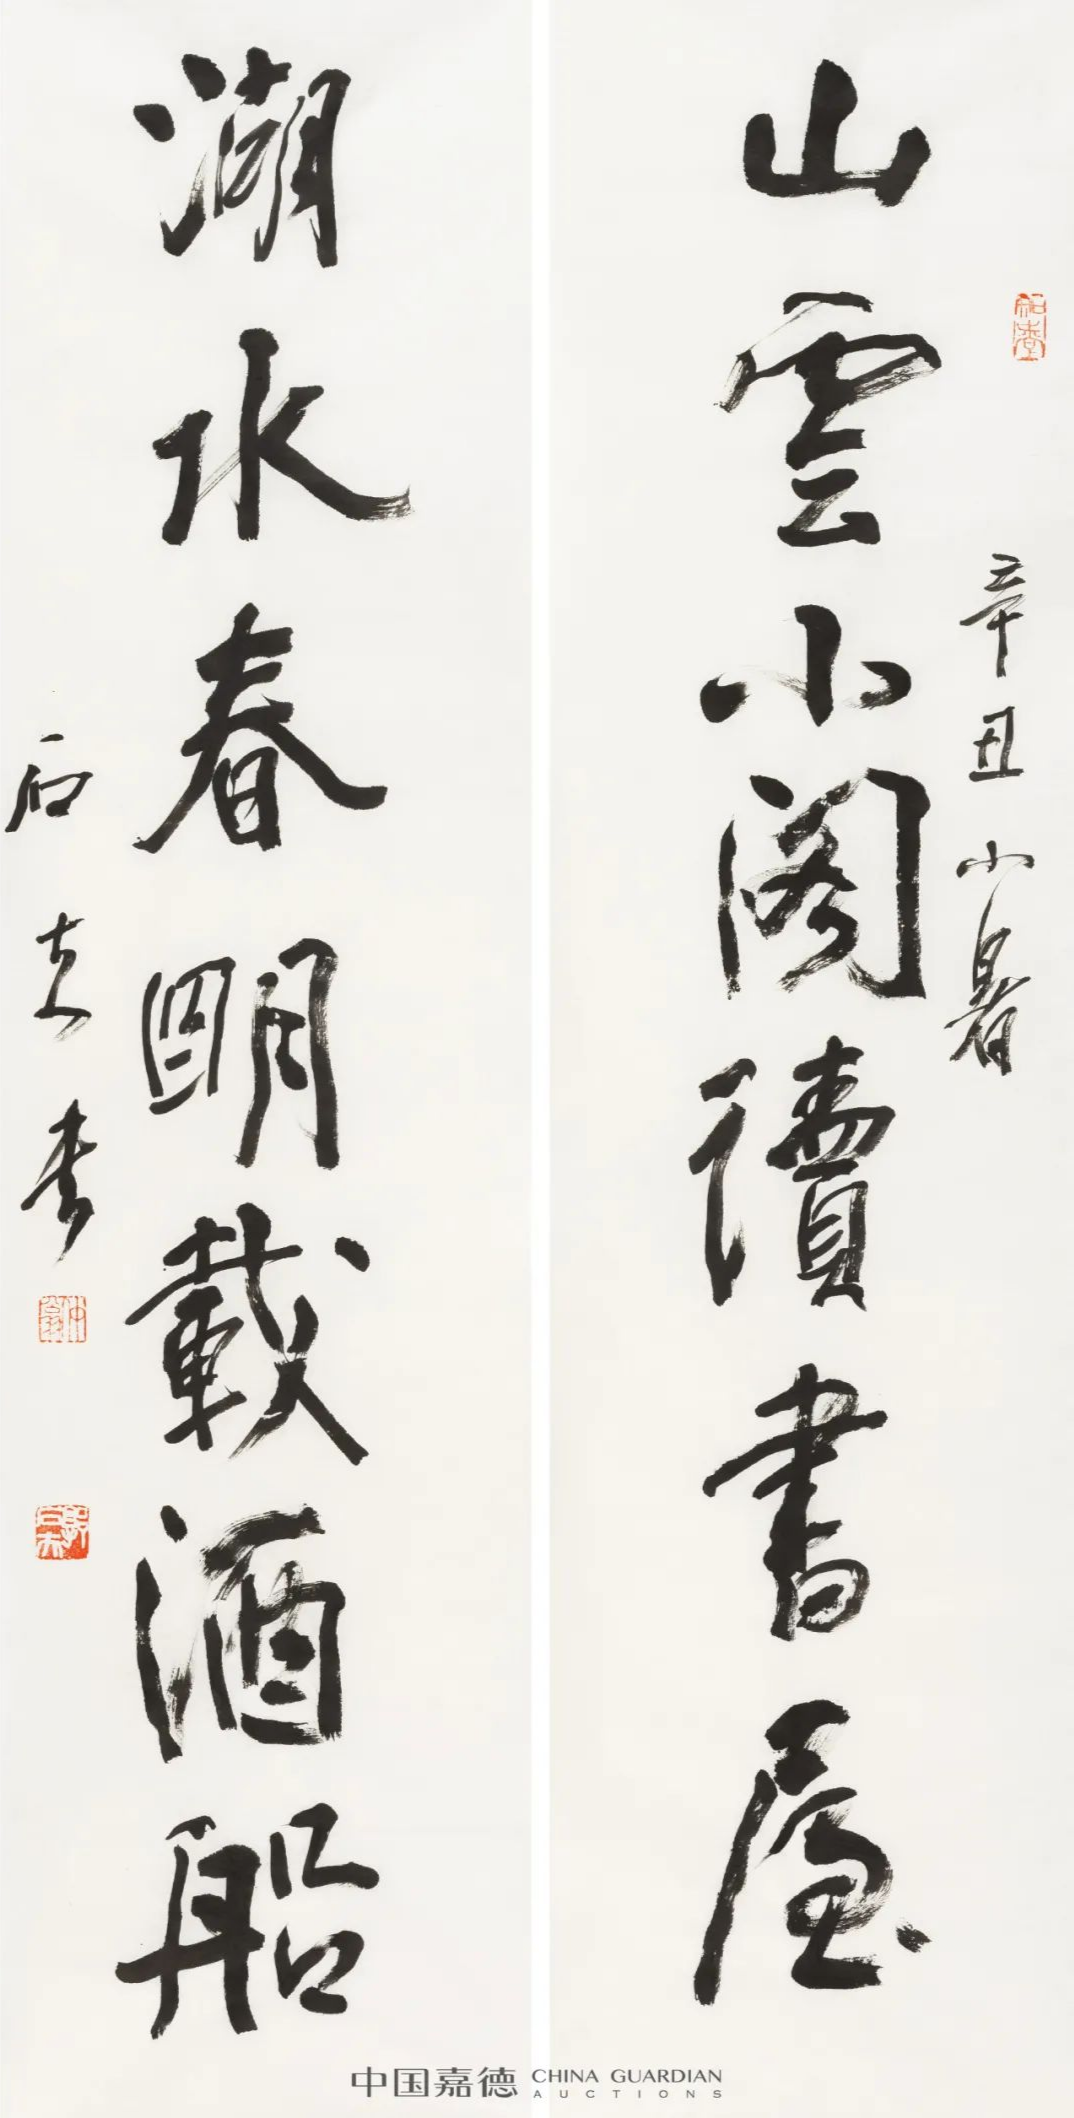 山雲小閣讀書屋
辛丑小暑
湖水春明載酒船
石夫書
郭石夫
中国嘉德 CHINA GUARDIAN
AUCTIONS